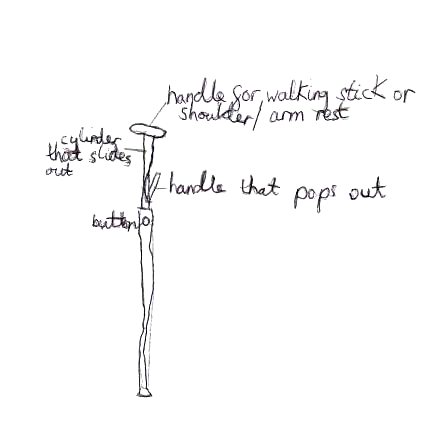 handle for walking stick or
shoulder/ arm rest
cylinder
that slides
out
handle that pops out
button